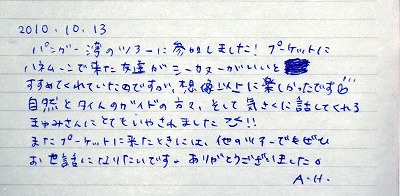 2010.10.13
パンガー湾のツアーに参加しました！プーケットに
ハネムーンで来た友達がシーカヌーがいいと
すすめてくれていたのですが、想像以上に楽しかったです
自然とタイ人のガイドの方々、そして気さくに話してくれる
まゆみさんにとてもいやされました!!
またプーケットに来たときには、他のツアーでもぜひ
お世話になりたいです。ありがとうございました。
A.H.